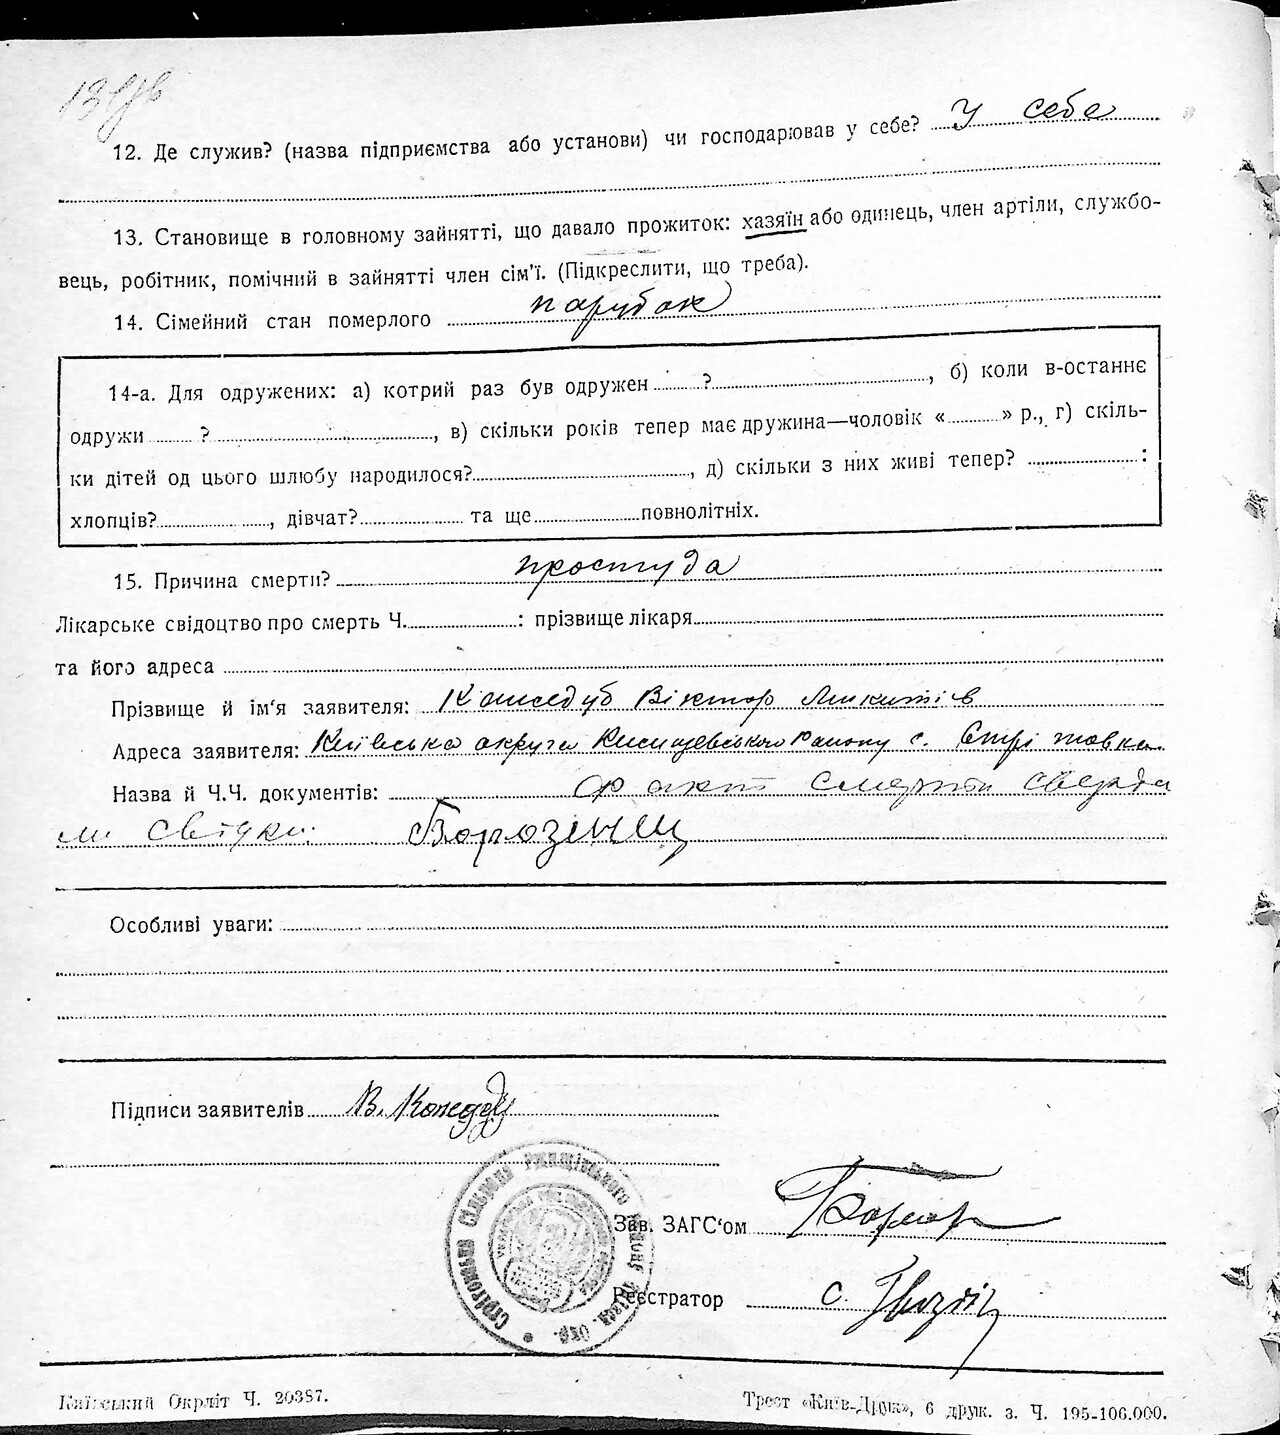 12. Де служив? (назва підприємства або установи) чи господарював у себе? У себе
13. Становище в головному зайнятті, що давало прожиток: хазяїн або одинець, член артіли, службо-
вець, робітник, помічний в зайнятті член сім'ї. (Підкреслити, що треба).
14. Сімейний стан померлого парубок
14-а. Для одружених: а) котрий раз був одружен ?, б) коли в-останнє
одружи ?, в) скільки років тепер має дружина—чоловік « » р., г) скіль-
ки дітей од цього шлюбу народилося?, д) скільки з них живі тепер? :
хлопців?, дівчат? та ще повнолітніх.
15. Причина смерти? простуда
Лікарське свідоцтво про смерть Ч. : прізвище лікаря
та його адреса
Прізвище й ім'я заявителя: Віктор Микитів
Адреса заявителя: Київська округа району с. Стрітовка
Назва й Ч.Ч. документів: Факт смерти сверда
ли свідки:
Особливі уваги:
Підписи заявителів В.
Стрітовська Сільрада Ржищівського Району Київск. Окр.
Зав. ЗАГС'ом
Реєстратор
Київський Окрліт Ч. 20387.
Трест «Київ-Друк», 6 друк. з. Ч. 195-106.000.